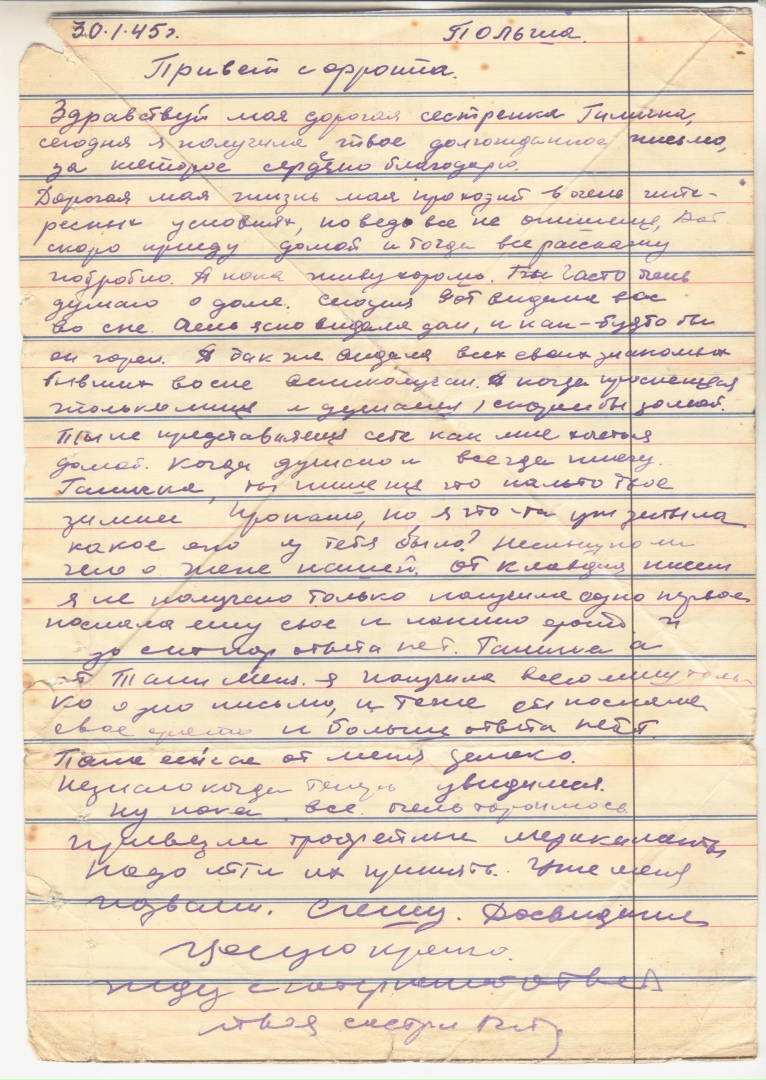 30.1.45г. Польша.
Привет с фронта.
Здравствуй моя дорогая сестренка Галичка,
сегодня я получила твое долгожданное письмо,
за которое сердечно благодарю.
Дорогая моя жизнь моя проходит в очень инте-
ресных условиях, но ведь все не опишешь, Вот
скоро приеду домой и тогда все расскажу
подробно. А пока живу хорошо. часто очень
думаю о доме. Сегодня вот видела вас
во сне. Очень ясно видела дом, и как-будто бы
он горел. А так же видела всех своих знакомых
бывших во сне А когда проснешься
и думаешь, скорей бы домой.
Ты не представляешь себе как мне хочется
домой. Когда думаю и всегда плачу.
Галичка, ты пишешь что пальто твое
зимнее пропало, но я что-то уж забыла
какое оно у тебя было? Неслышно ли
чего о Жене нашей. От Клавдия писем
я не получаю только получила одно первое
послала ему свое и фото и
до сих пор ответа нет. Галичка а
от Тани я получила всего лишь толь-
ко одно письмо, и тоже ей послала
свое фото и больше ответа нет.
Таня сейчас от меня далеко.
Незнаю когда теперь увидимся.
Ну пока все. очень тороплюсь
привезли трофейные медикаменты
надо идти их принять. Уже меня
позвали. Спешу. Досвидание
Целую крепко.
жду с нетерпением ответ
твоя сестра